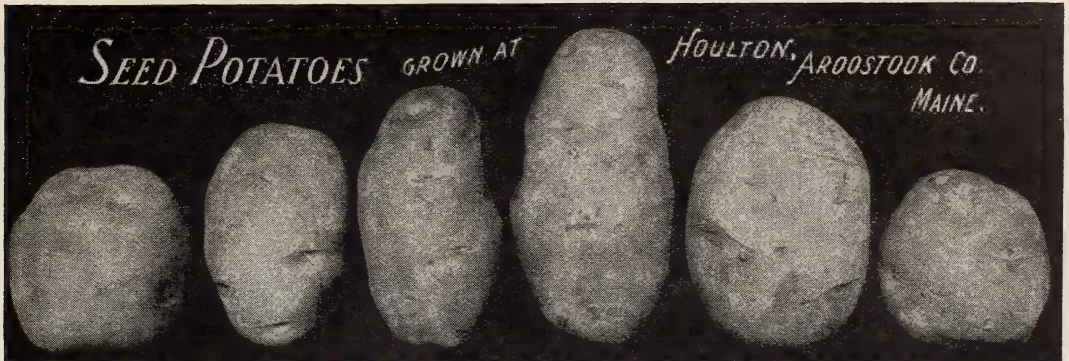 SEED POTATOES GROWN AT HOULTON, AROOSTOOK CO.
MAINE.